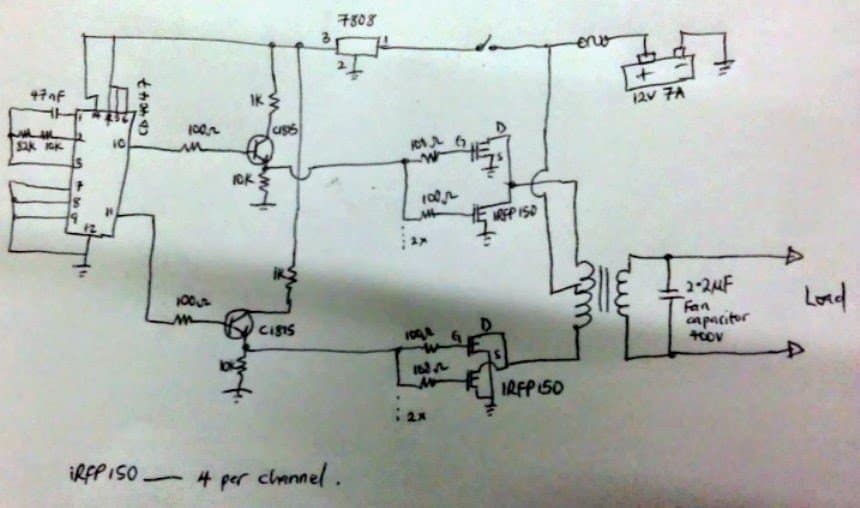 7808
3
1
2
12V 7A
+
-
47nF
CD4047
14 4 5 6
1
2
3
7
8
9
10
11
12
82K 10K
100Ω
1K
C1815
10K
100Ω
G
D
S
100Ω
IRFP150
2x
1K
100Ω
C1815
10K
100Ω
G
D
S
100Ω
IRFP150
2x
2.2µF
Fan
capacitor
400V
Load
iRFP150 — 4 per channel.